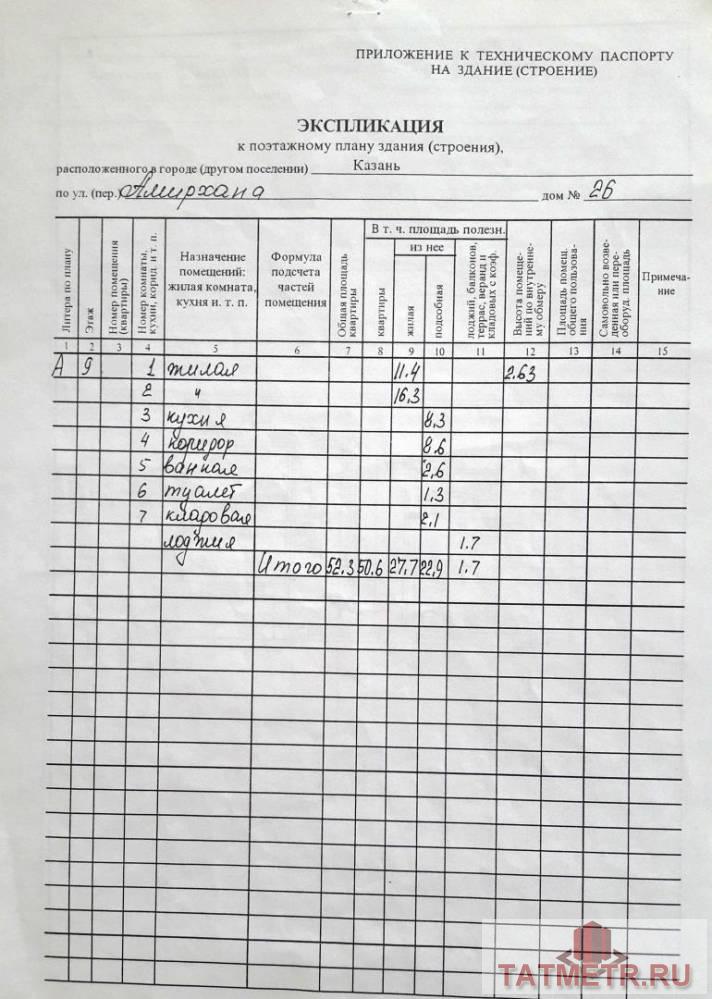 ПРИЛОЖЕНИЕ К ТЕХНИЧЕСКОМУ ПАСПОРТУ
НА ЗДАНИЕ (СТРОЕНИЕ)
ЭКСПЛИКАЦИЯ
к поэтажному плану здания (строения),
расположенного в городе (другом поселении) Казань
по ул. (пер. Амирхана дом № 26
Литера по плану
Этаж
Номер помещения (квартиры)
Номер комнаты, кухни, корид. и т. п.
Назначение помещений: жилая комната, кухня и. т. п.
Формула подсчета частей помещения
Общая площадь квартиры
В т. ч. площадь полезн.
квартиры
из нее
жилая
подсобная
лоджий, балконов, террас, веранд и кладовых с коэф.
Высота помещений по внутреннему обмеру
Площадь помещ. общего пользования
Самовольно возведенная или переоборуд. площадь
Примечание
1 2 3 4 5 6 7 8 9 10 11 12 13 14 15
А 9 1 жилая 11.4 2.63
2 " 16,3
3 кухня 8,3
4 коридор 8.6
5 ванная 2,6
6 туалет 1,3
7 кладовая 2,1
лоджия 1.7
Итого 52.3 50.6 27.7 22,9 1.7
TATMETR.RU